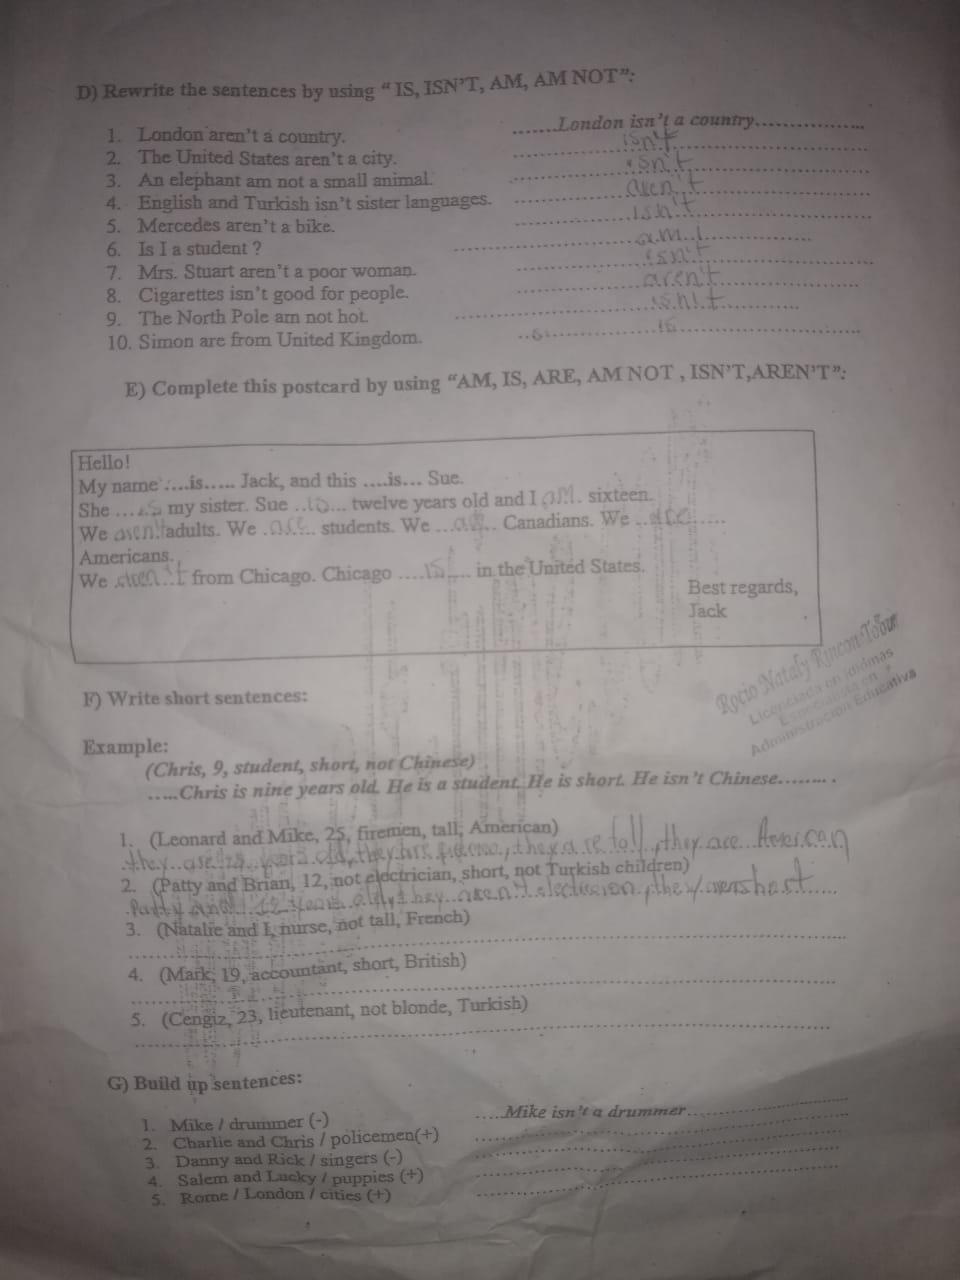 D) Rewrite the sentences by using " IS, ISN'T, AM, AM NOT":
1. London aren't a country. .......London isn't a country...............
2. The United States aren't a city. isn't
3. An elephant am not a small animal. isn't
4. English and Turkish isn't sister languages. aren't
5. Mercedes aren't a bike. isn't
6. Is I a student ? am I
7. Mrs. Stuart aren't a poor woman. isn't
8. Cigarettes isn't good for people. aren't
9. The North Pole am not hot. isn't
10. Simon are from United Kingdom. is
E) Complete this postcard by using "AM, IS, ARE, AM NOT , ISN'T,AREN'T":
Hello!
My name ....is..... Jack, and this ....is... Sue.
She ....is my sister. Sue ..is... twelve years old and I am. sixteen.
We aren't adults. We .are.. students. We ... Canadians. We ..are.....
Americans.
We aren't from Chicago. Chicago ....is.... in the United States.
Best regards,
Jack
Rocio Nataly Rincon Tobur
Licenciada en idiomas
Especialista en
Administración Educativa
F) Write short sentences:
Example:
(Chris, 9, student, short, not Chinese)
.....Chris is nine years old. He is a student. He is short. He isn't Chinese........ .
1. (Leonard and Mike, 25, firemen, tall, American)
they are 25 years old, they are , they are tall, they are American
2. (Patty and Brian, 12, not electrician, short, not Turkish children)
Patty and 12 years old, they aren't , they
3. (Natalie and I, nurse, not tall, French)
4. (Mark, 19, accountant, short, British)
5. (Cengiz, 23, lieutenant, not blonde, Turkish)
G) Build up sentences:
1. Mike / drummer (-) .....Mike isn't a drummer...
2. Charlie and Chris / policemen(+)
3. Danny and Rick / singers (-)
4. Salem and Lucky / puppies (+)
5. Rome / London / cities (+)